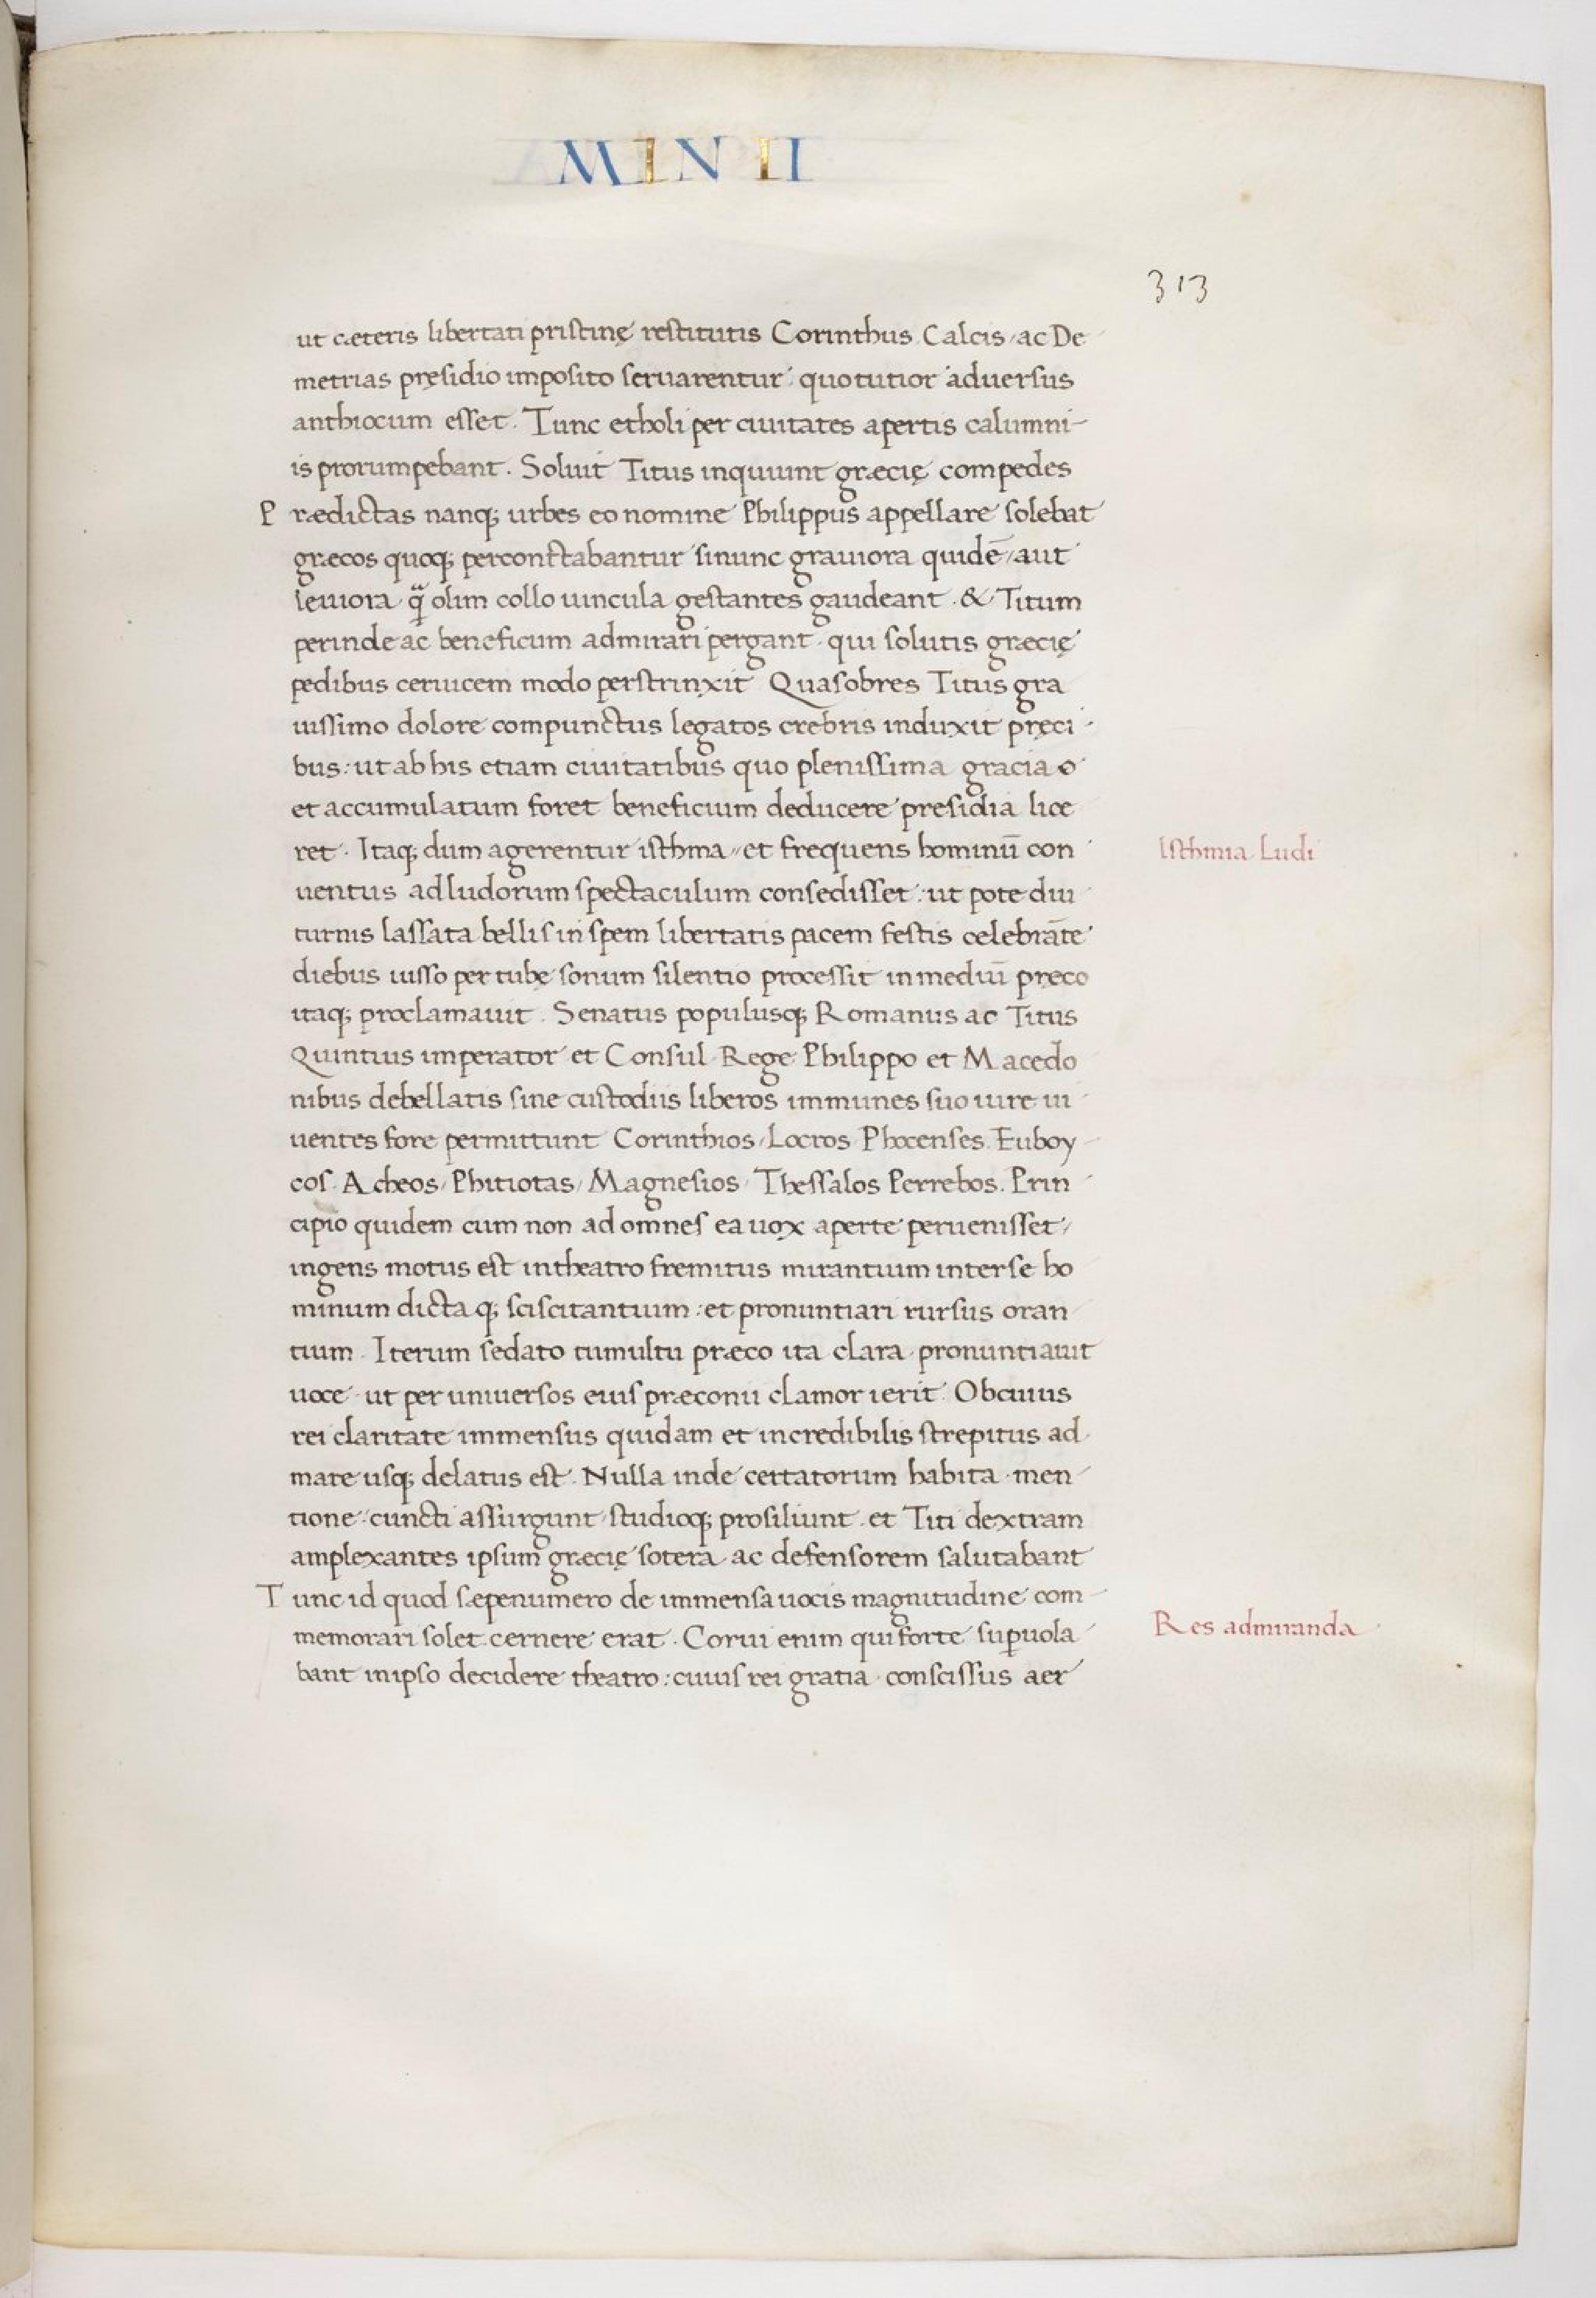 MINII
313
ut cæteris libertati pristinę restitutis Corinthus. Calcis, ac De-
metrias pręsidio imposito seruarentur: quo tutior aduersus
anthiocum esset. Tunc etholi per ciuitates apertis calumni-
is prorumpebant. Soluit Titus inquiunt græcię compedes
Prædictas nanq; urbes eo nomine Philippus appellare solebat
græcos quoq; percontctabantur si nunc grauiora quidē, aut
leuiora q̃ olim collo uincula gestantes gaudeant. & Titum
perinde ac beneficum admirari pergant. qui solutis græcię
pedibus ceruicem modo perstrinxit Quasobres Titus gra
uissimo dolore compunctus legatos crebris induxit pręci-
bus: ut ab his etiam ciuitatibus quo plenissima gracia o
et accumulatum foret beneficium deducere presidia lice
ret. Itaq; dum agerentur isthma, et frequens hominū con
Isthmia Ludi
uentus ad ludorum spectaculum consedisset: ut pote diu
turnis lassata bellis in spem libertatis pacem festis celebrāte
diebus iusso per tubę sonum silentio processit in mediū pręco
itaq; proclamauit. Senatus populusq; Romanus ac Titus
Quintius imperator et Consul Rege Philippo et Macedo
nibus debellatis sine custodiis liberos immunes suo iure ui
uentes fore permittunt Corinthios, Locros Phocenses. Euboy-
cos. Acheos, Phitiotas, Magnesios, Thessalos Perrebos. Prin
cipio quidem cum non ad omnes ea uox aperte peruenisset,
ingens motus est in theatro fremitus mirantium inter se ho
minum dicta q; sciscitantium: et pronuntiari rursus oran
tium. Iterum sedato tumultu præco ita clara pronuntiauit
uoce ut per uniuersos eius præconii clamor ierit. Ob cuius
rei claritate immensus quidam et incredibilis strepitus ad
mare usq; delatus est. Nulla inde certatorum habita men-
tione: cuncti assurgunt studioq; prosiliunt. et Titi dextram
amplexantes ipsum græcię sotera ac defensorem salutabant
Tunc id quod sæpenumero de immensa uocis magnitudine com-
memorari solet cernere erat. Corui enim qui forte suꝑuola
Res admiranda
bant in ipso decidere theatro: cuius rei gratia conscissus aer